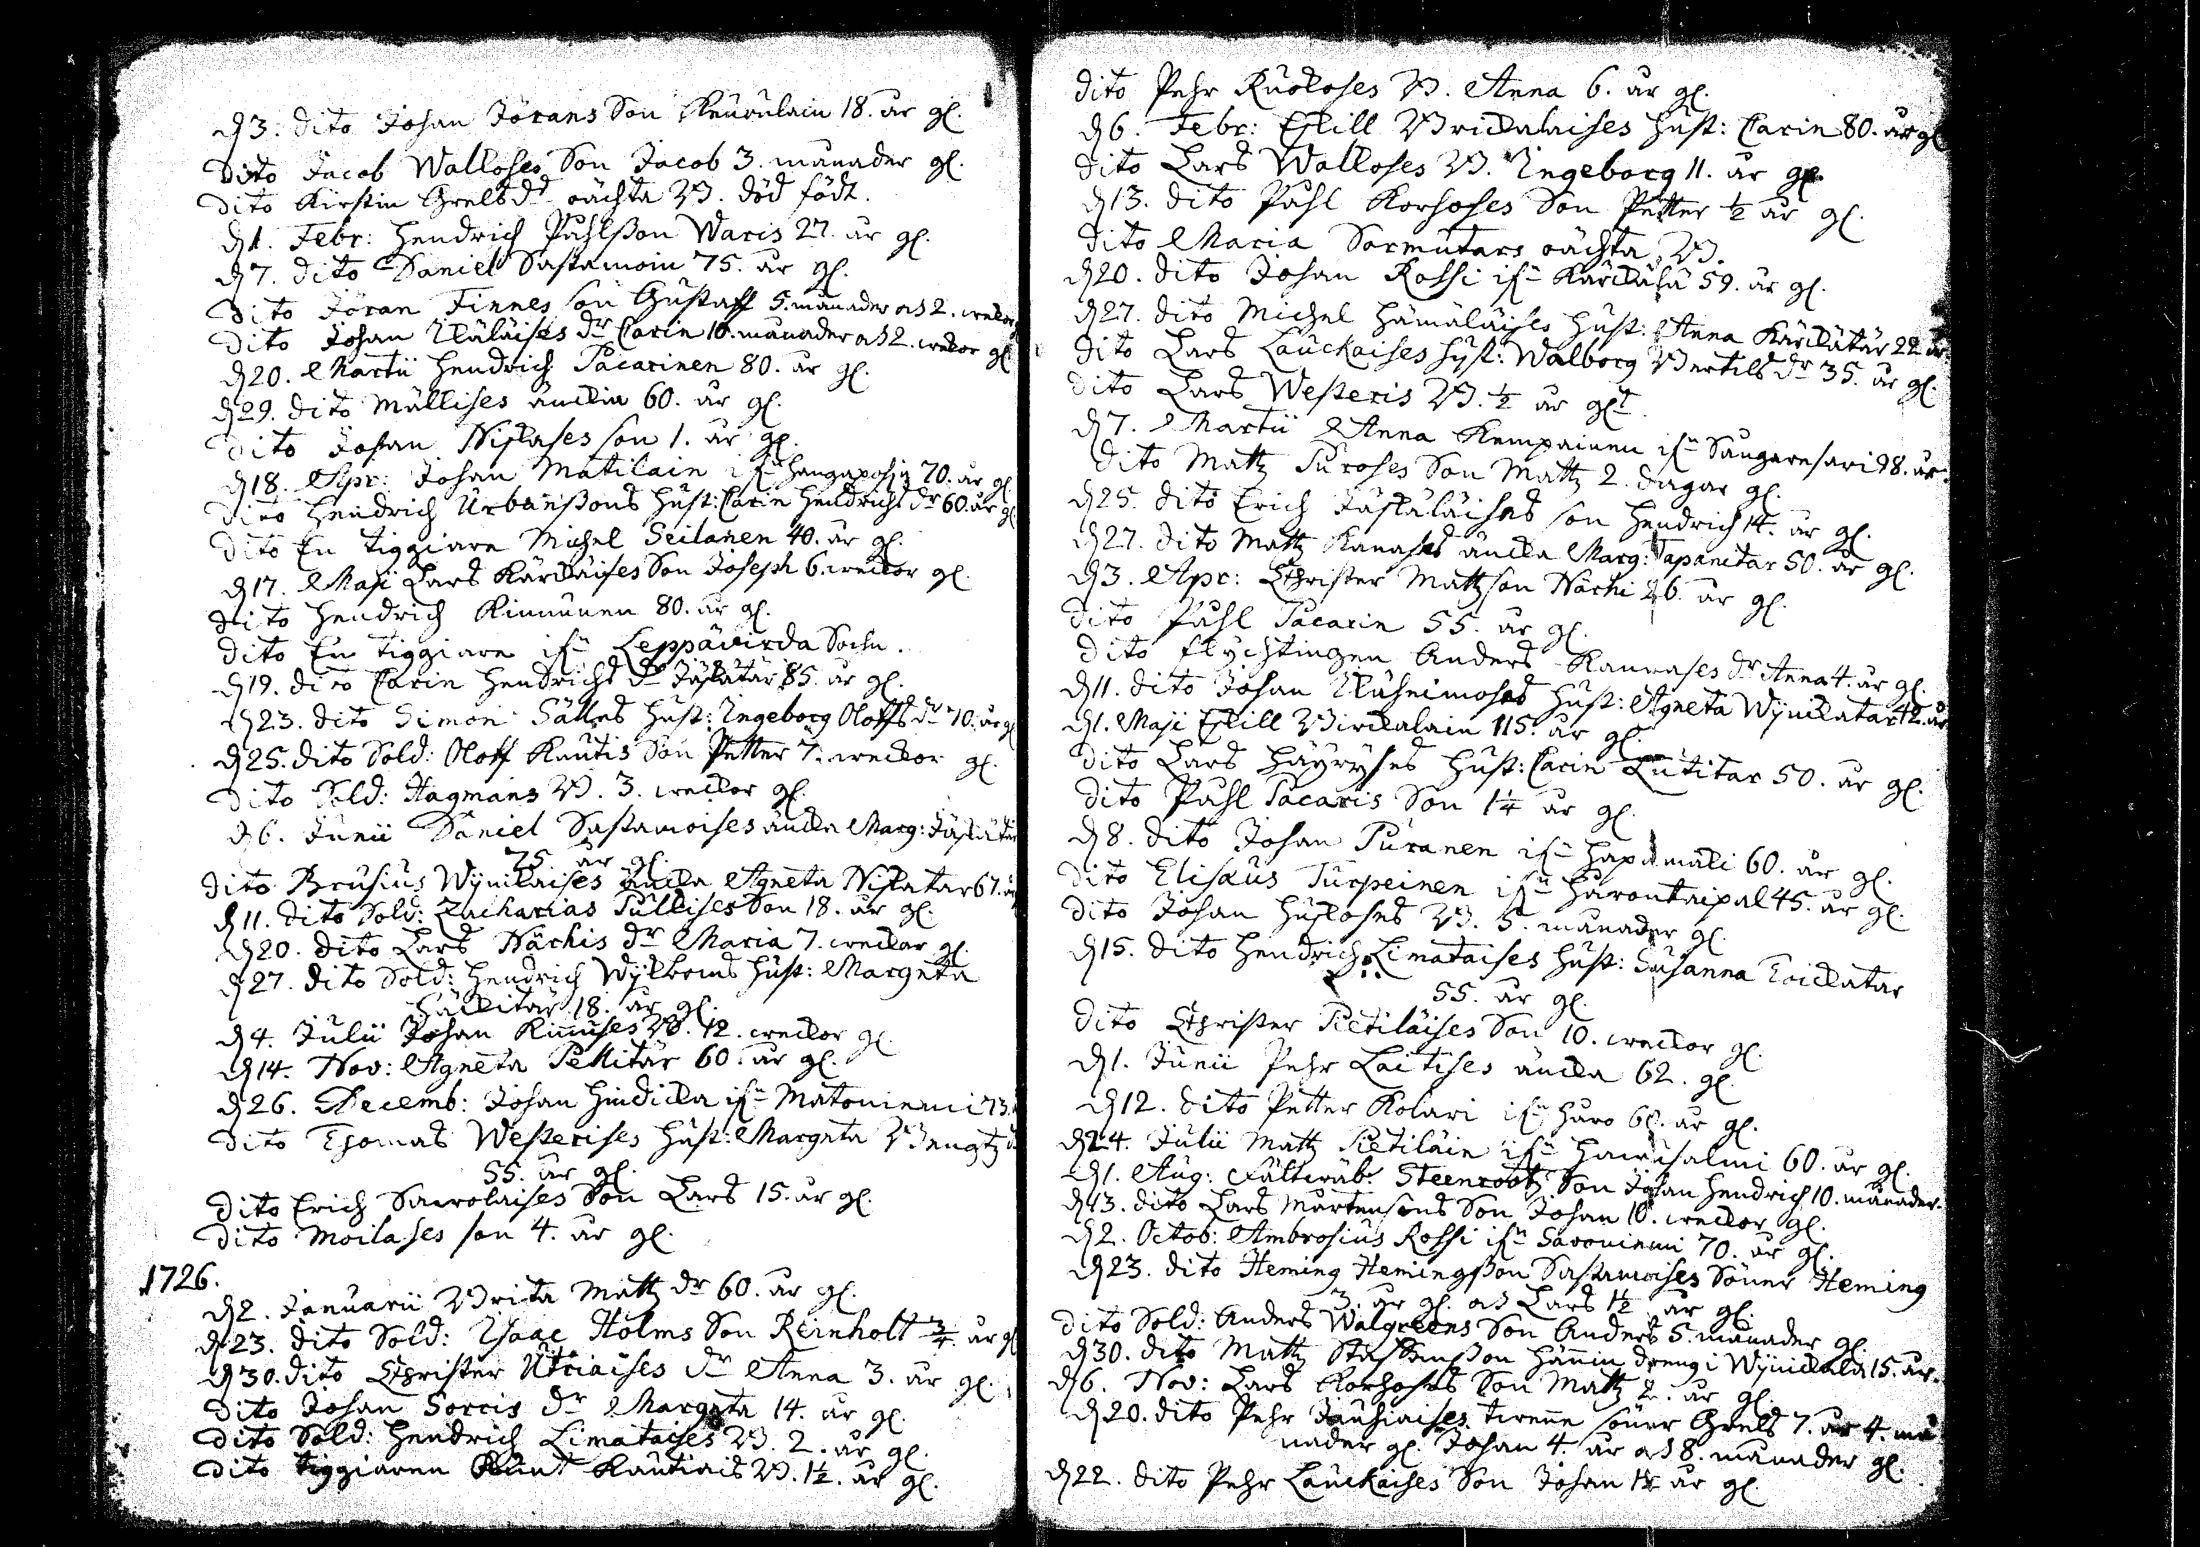 d 3. dito Johan Jörans Son Keurulain 18. år gl.
Dito Jacob Walloses Son Jacob 3. månader gl.
Dito Kirstin Grelsdr oächta B. död födt.
d 1. Febr: Hendrich Påhlsson Waris 27. år gl.
d 7. dito Daniel Sastamoin 75. år gl.
Dito Jöran Finnes son Gustaff 5. månader och 2. weckor
Dito Johan Ukäläises dr Carin 10. månader och 2. weckor gl.
d 20. Martii Hendrich Pacarinen 80. år gl.
d 29. dito Mällises änckia 60. år gl.
Dito Johan Niskases son 1. år gl.
d 18. Apr: Johan Matilain if:n Hangaposki 70. år gl.
Dito Hendrich Urbanssons Hust: Carin Hendrichs dr 60. år gl.
Dito En tiggiare Michel Seilanen 40. år gl.
d 17. Maji Lars Kärckäises Son Joseph 6. weckor gl.
Dito Hendrich Kinnunen 80. år gl.
Dito En tiggiare if:n Leppävirda Sochn.
d 19. dito Carin Hendrichs dr Jäskätär 85. år gl.
d 23. dito Simon Hust: Ingeborg Oloffs dr 70. år gl.
d 25. dito Sold: Oloff Kautis Son Petter 7. weckor gl.
Dito Sold: Hagmans B. 3. weckor gl.
d 6. Junii Daniel Sastamoises änckia Marg: Jäskätär
75 år gl.
Dito Brusius Wynikaises änckia Agneta Niskatar 67. år
d 11. dito Sold: Zacharias Pullises Son 18. år gl.
d 20. dito Lars Närhis dr Maria 7. weckor gl.
d 27. dito Sold: Hendrich Wijkboms Hust: Margeta
Häckitär 18. år gl.
d 4. Julii Johan Kinnuses B. 12. weckor gl.
d 14. Nov: Agneta Pellitär 60. år gl.
d 26. Decemb: Johan Hindicka if:n Matoniemi 73.
Dito Thomas Westerises Hust: Margeta Bengtz dr
55. år gl.
Dito Erich Sawolaises Son Lars 15. år gl.
Dito Moilases son 4. år gl.
1726.
d 2. Januarii Brita Matz dr 60. år gl.
d 23. dito Sold: Isaac Holms Son Reinholt 3/4. år gl.
d 30. dito Christer Utriaises dr Anna 3. år gl.
Dito Johan Sorris dr Margeta 14. år gl.
Dito Sold: Hendrich Limataises B. 2. år gl.
Dito tiggiaren Knut Kautiais B. 1 1/2. år gl.
dito Pehr Ruokoses B. Anna 6. år gl.
d 6. Febr: Eskill Birckalaises Hust: Carin 80. år gl.
Dito Lars Walloses B. Ingeborg 11. år gl.
d 13. dito Påhl Korhoses Son Petter 1/2 år gl.
Dito Maria Sormutars oächta B.
d 20. dito Johan Rossi if:n Kärckälä 59. år gl.
d 27. dito Michel Hämäläises Hust: Anna Kärckätär 22 år.
Dito Lars Lauckaises Hust: Walborg Bertils dr 35. år gl.
Dito Lars Westeris B. 1/2 år gl.
d 7. Martii Anna Kempainen if:n Saugaresari 98. år.
Dito Matz Puroses Son Matz 2. dagar gl.
d 25. dito Erich Jäskäläises son Hendrich 14. år gl.
d 27. dito Matz Kanases änckia Marg: Tapanitar 50. år gl.
d 3. Apr: Christer Matzson Närhi 26. år gl.
Dito Påhl Pacarin 55. år gl.
Dito flychtingen Anders Kaurases dr Anna 4. år gl.
d 11. dito Johan Hust: Agneta Wynickatar 42. år
d 1. Maji Eskill Birckalain 115. år gl.
Dito Lars Häyryses Hust: Carin Lutitar 50. år gl.
Dito Påhl Pacaris Son 1 1/4 år gl.
d 8. dito Johan Puranen if:n Hapamäki 60. år gl.
Dito Elisæus Turpeinen if:n Harontaipal 45. år gl.
Dito Johan Huskoses B. 5. månader gl.
d 15. dito Hendrich Limataises Hust: Susanna Toickatar
55. år gl.
Dito Christer Pietiläises Son 10. weckor gl.
d 1. Junii Pehr Laitises änckia 62. gl.
d 12. dito Petter Kolari if:n Haro 60. år gl.
d 24. Julii Matz Pietiläin if:n Hankasalmi 60. år gl.
d 1. Aug: Fältwäb: Steenroots Son Johan Hendrich 10. månader.
d 13. dito Lars Mårtensons Son Johan 10. weckor gl.
d 2. Octob: Ambrosius Rossi if:n Savoniemi 70. år gl.
d 23. dito Heming Hemingsson Sastamoises Söner Heming
3. år gl. och Lars 1 1/2 år gl.
Dito Sold: Anders Walgreens Son Anders 5. månader gl.
d 30. dito Matz Staffansson Hänin dreng i Wynickala 15. år.
d 6. Nov: Lars Korhoses Son Matz 2. år gl.
d 20. dito Pehr Jauhiaises twenne söner Grels 7. år 4. må
nader gl. Johan 4. år och 8. månader gl.
d 22. dito Pehr Lauckaises Son Johan 1 1/2 år gl.